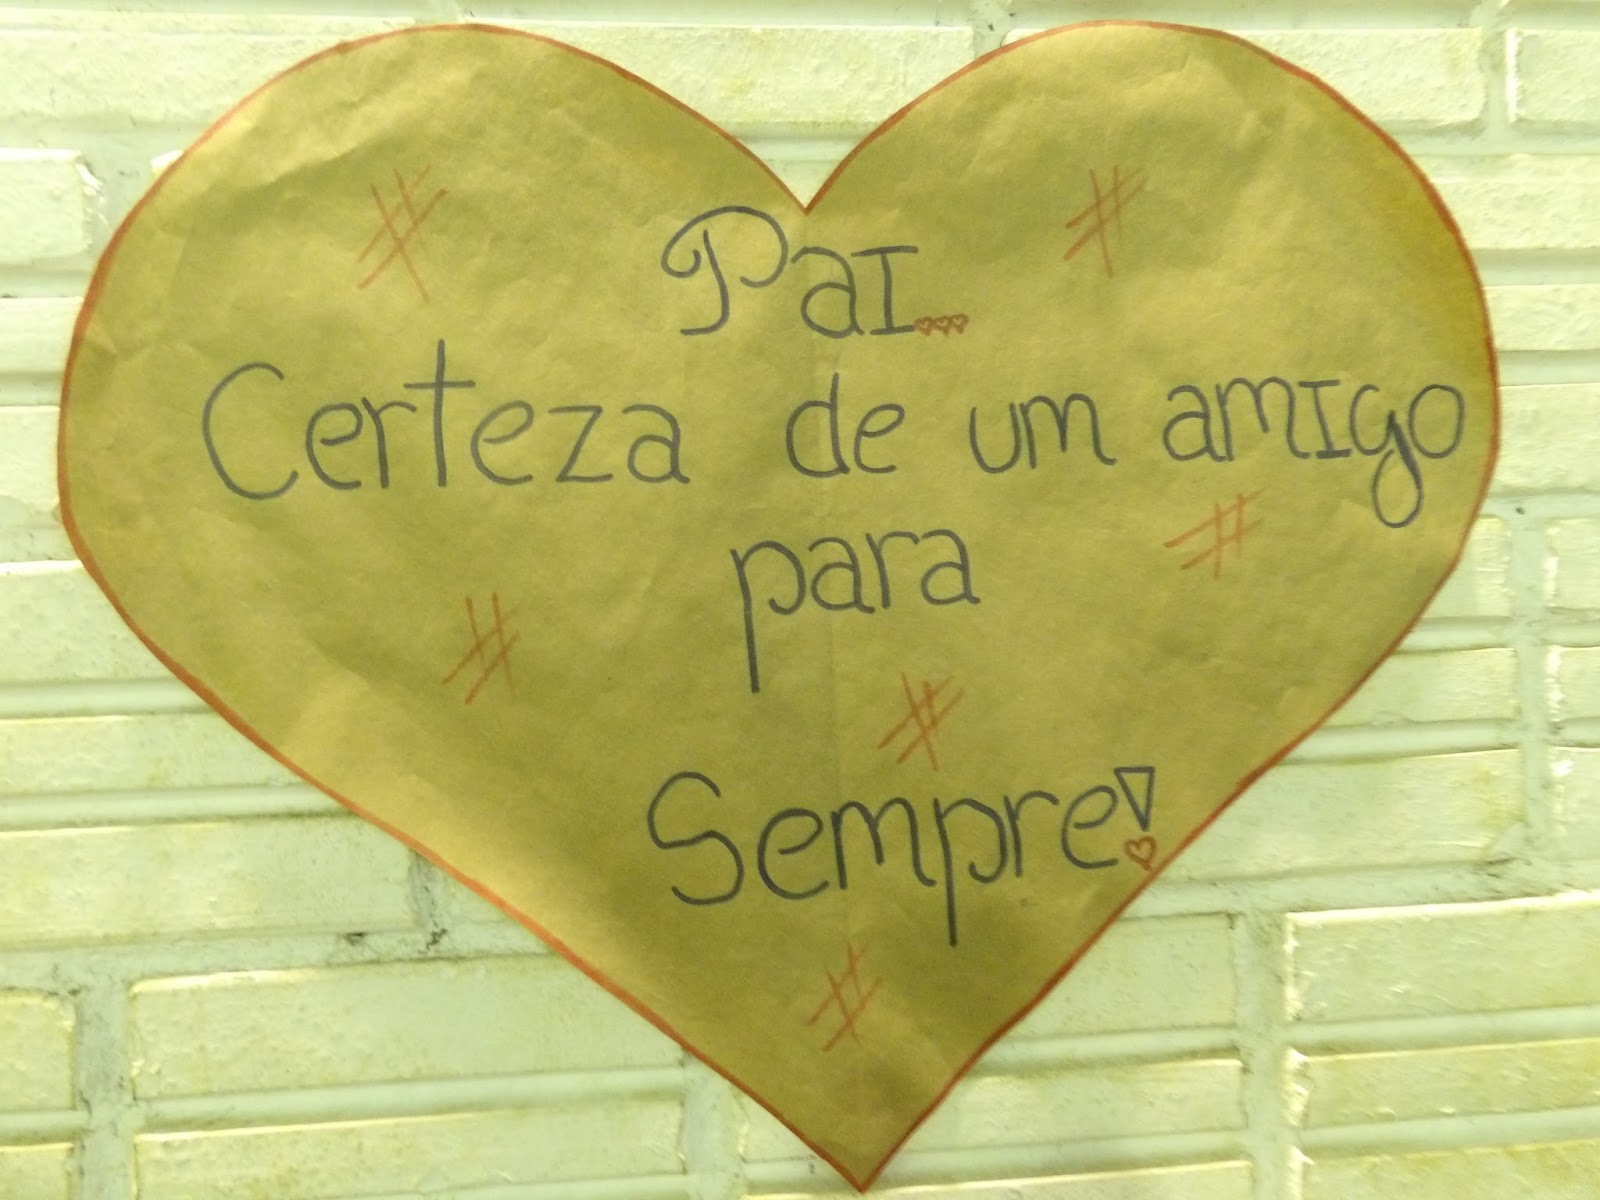 Pai...
Certeza de um amigo
para
Sempre!